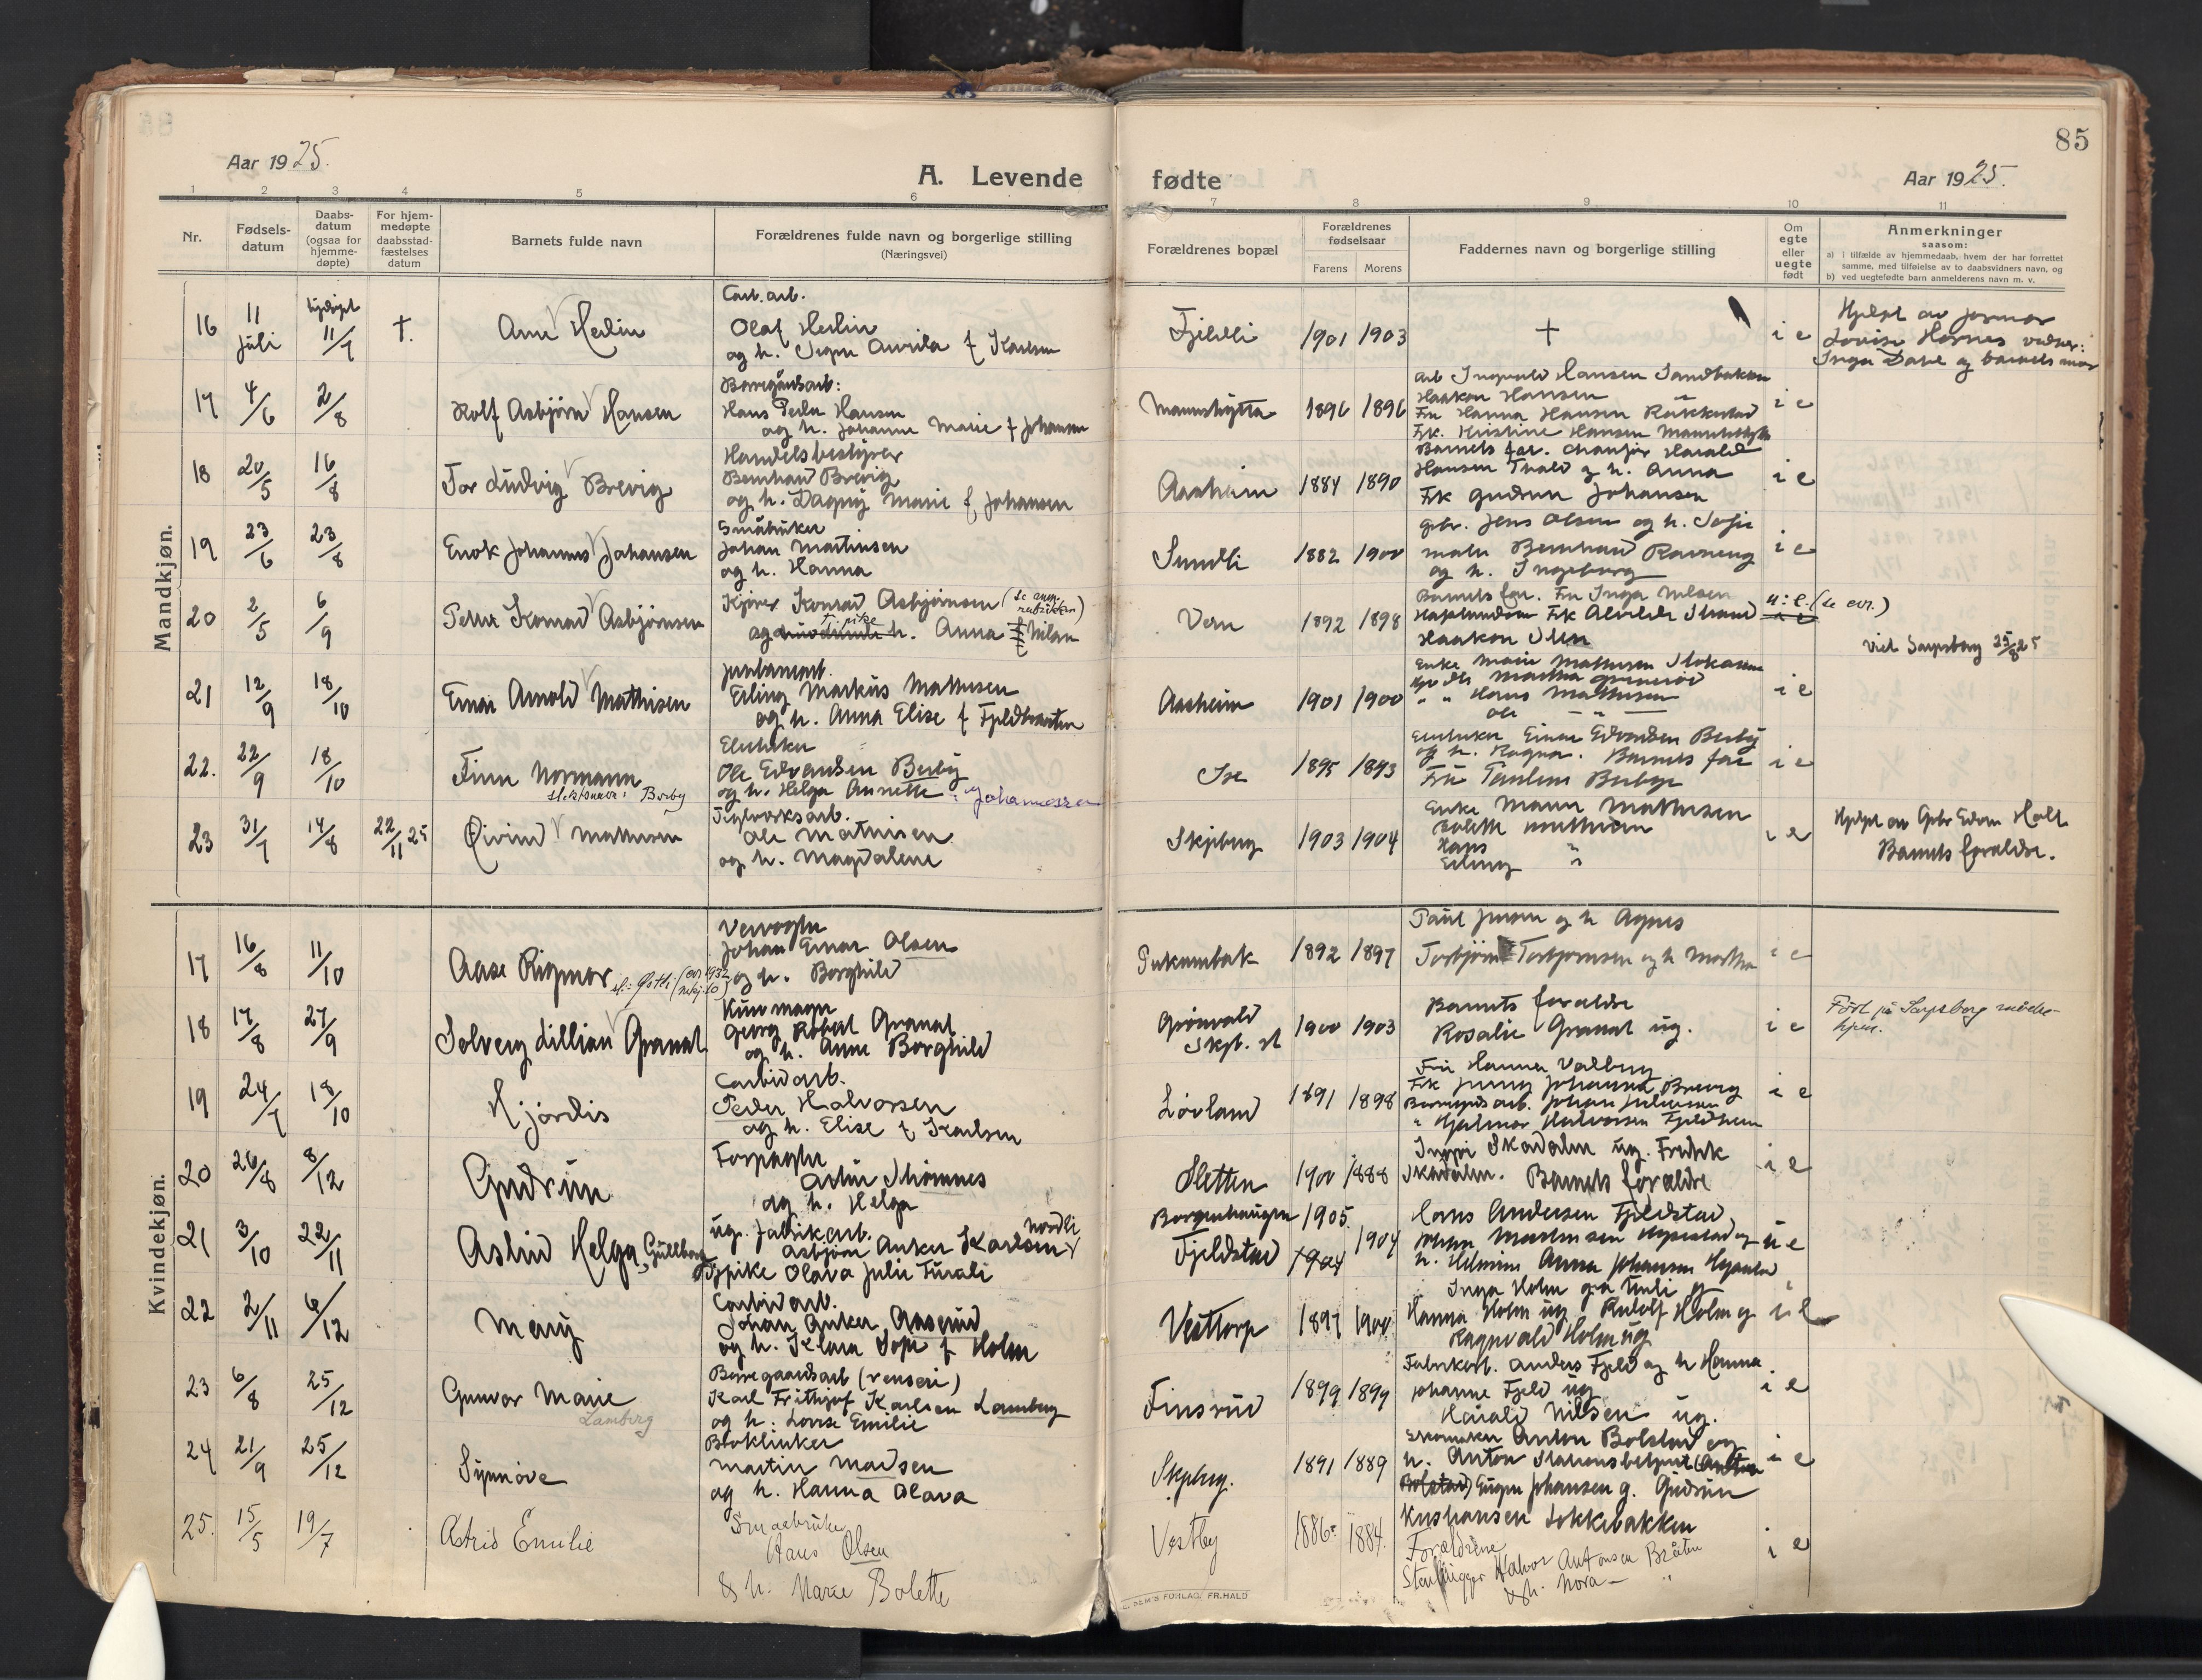 85
Aar 1925.
A. Levende fødte
Aar 1925.
1 2 3 4 5 6 7 8 9 10 11
Nr.
Fødsels-
datum
Daabs-
datum
(ogsaa for
hjemme-
døpte)
For hjem-
medøpte
daabsstad-
fæstelses
datum
Barnets fulde navn
Forældrenes fulde navn og borgerlige stilling
(Næringsvei)
Forældrenes bopæl
Forældrenes
fødselsaar
Farens Morens
Faddernes navn og borgerlige stilling
Om
egte
eller
uegte
født
Anmerkninger
saasom:
a) i tilfælde av hjemmedaab, hvem der har forrettet
samme, med tilføielse av to daabsvidners navn, og
b) ved uegtefødte barn anmelderens navn m. v.
Mandkjøn.
16 11 juli 11/7 †. Arne Hedin
Carb. arb.
Olaf Hedin
og h. Signe Aurila f Karlsen
Fjeldli 1901 1903 † i e
Hjdpt av jormor
Lovise Hornes vidner:
Inga Dahl og barnets mor
17 4/6 2/8 Rolf Asbjørn Hansen
Borregårdsarb:
Hans Peder Hansen
og h. Johanne Marie f Johansen
1896 1896
arb Ingvald Hansen Sandbakken
Haakon Hansen "
Fru Hanna Hansen Rakkestad
Frk. Kristine Hansen
i e
18 20/5 16/8 Tor Ludvig Brevig
Handelsbestyrer
Bernhard Brevig
og h. Dagny Marie f Johansen
Aasheim 1884 1890
Barnets far. Chauför Harald
Hansen Tvald og h. Anna
Frk Gudrun Johansen
i e
19 23/6 23/8 Enok Johannes Johansen
Småbruker
Johan Martinsen
og h. Hanna
Sundli 1882 1900
gbr. Jens Olsen og h. Sofie
maler Bernhard Ravneng
og h. Ingeborg
i e
20 2/5 6/9 Petter Konrad Asbjørnsen
Kjører Konrad Asbjørnsen (se anm. rubrikken)
og pike h. Anna f Nilsen
Vern 1892 1898
Barnets far. Fru Inga Nilsen
Haslundsøen Frk Alvilde Strand
Haakon Olsen
u: e. (se avr.)
i e
viet Sarpsborg 25/8 25
21 12/9 18/10 Einar Arnold Mathisen
jernbanearb.
Erling Markus Mathisen
og h. Anna Elise f Fjeldkarten
Aasheim 1901 1900
Enke Marie Mathisen
Martha Grimerød
" " Hans Mathisen
Ole " —
i e
22. 22/9 18/10 Finn Normann
slektsnavn: Berby
Elektriker
Ole Edvardsen Berby
og h. Helga Annette: Johannessen
Ise 1895 1893
Elektriker Einar Edvardsen Berby
og h. Ragna. Barnets far
Frk Pauline Berby
i e
23 31/7 14/8 22/11 25 Øivind Mathisen
Teglverksarb.
Ole Mathisen
og h. Magdalene
Skjeberg 1903 1904
Enke Marie Mathisen
Bolette Mathisen
Hans "
Erling "
i e
Hjdpt av Gbr Edvin Holt
Barnets forældre.
Kvindekjøn.
17 16/8 11/10 Aase Rigmor
Johan Einar Olsen
og h. Borghild
1892 1897
Paul Jensen og h Agnes
Torbjørn Torbjørnsen og h Martha
i e
18 17/8 27/9 Solveig Lillian Granat
Georg Robert Granat
og h. Anne Borghild
Grönvald
Skjb. st
1900 1903
Barnets forældre
Rosalie Granat ug.
i e
Född på Sarpsborg fødehjem.
19 24/7 18/10 Hjördis
Carbidarb.
Peder Halvorsen
og h. Elise f Karlsen
Løvland 1891 1898
Fru Hanna Valberg
Frk Jenny Johansen Brevig
Borregårdsarb. Johan Johansen
" Hjalmar Halvorsen Fjeldheim
i e
20 26/8 8/12 Gudrun
Forpagter
Artur Thomnes
og h. Helga
Sletten 1900 1888
Ingrid Skadalen ug. Fredrik
Skadalen. Barnets forældre
i e
21 3/10 22/11 Astrid Helga, Gullborg
ug. fabrikarb. Nordli
Asbjørn Anker Karlsen
og pike Olava Julie Tunli
Borgenhaugen 1905
Fjeldstad 1904 1904
Hans Andersen Fjeldstad
Johan Martinsen
h. Helmine Anna Johansen
u e
22 2/11 6/12 Mary
Carbidarb.
Johan Anker Aaserud
og h. Klara Sofie f Holm
Vesttorp 1897 1900
Inga Holm
Hanna Holm ug. Rudolf Holm og
Ragnvald Holm ug
i e
23 6/8 25/12 Gunvor Marie
Lamberg
Borregaardsarb (renseri)
Karl Frithjof Karlsen Lamberg
og h. Lovise Emilie
Finsrud 1899 1899
Fabrikarb. Anders Fjeld og h Hanna
Johanne Fjeld ug
Harald Nilsen ug.
i e
24 21/9 25/12 Synnøve
Blokkinker
Martin Madsen
og h. Hanna Olava
Skjeberg. 1891 1889
Skomaker Anton Bolstad og
h. Anton Stationsbetjent (Anton
Bolstad) Eugen Johansen g. Gudrun
Kristiansen Løkkebakken
i e
25. 15/5 19/7 Astrid Emilie
Smaabruker
Hans Olsen
& h. Marie Bolette
Vestby 1886. 1884.
Forældrene
Stenhugger Halvor Antonsen Bråten
& h. Nora — "
i e
FORLAG FR. HALD